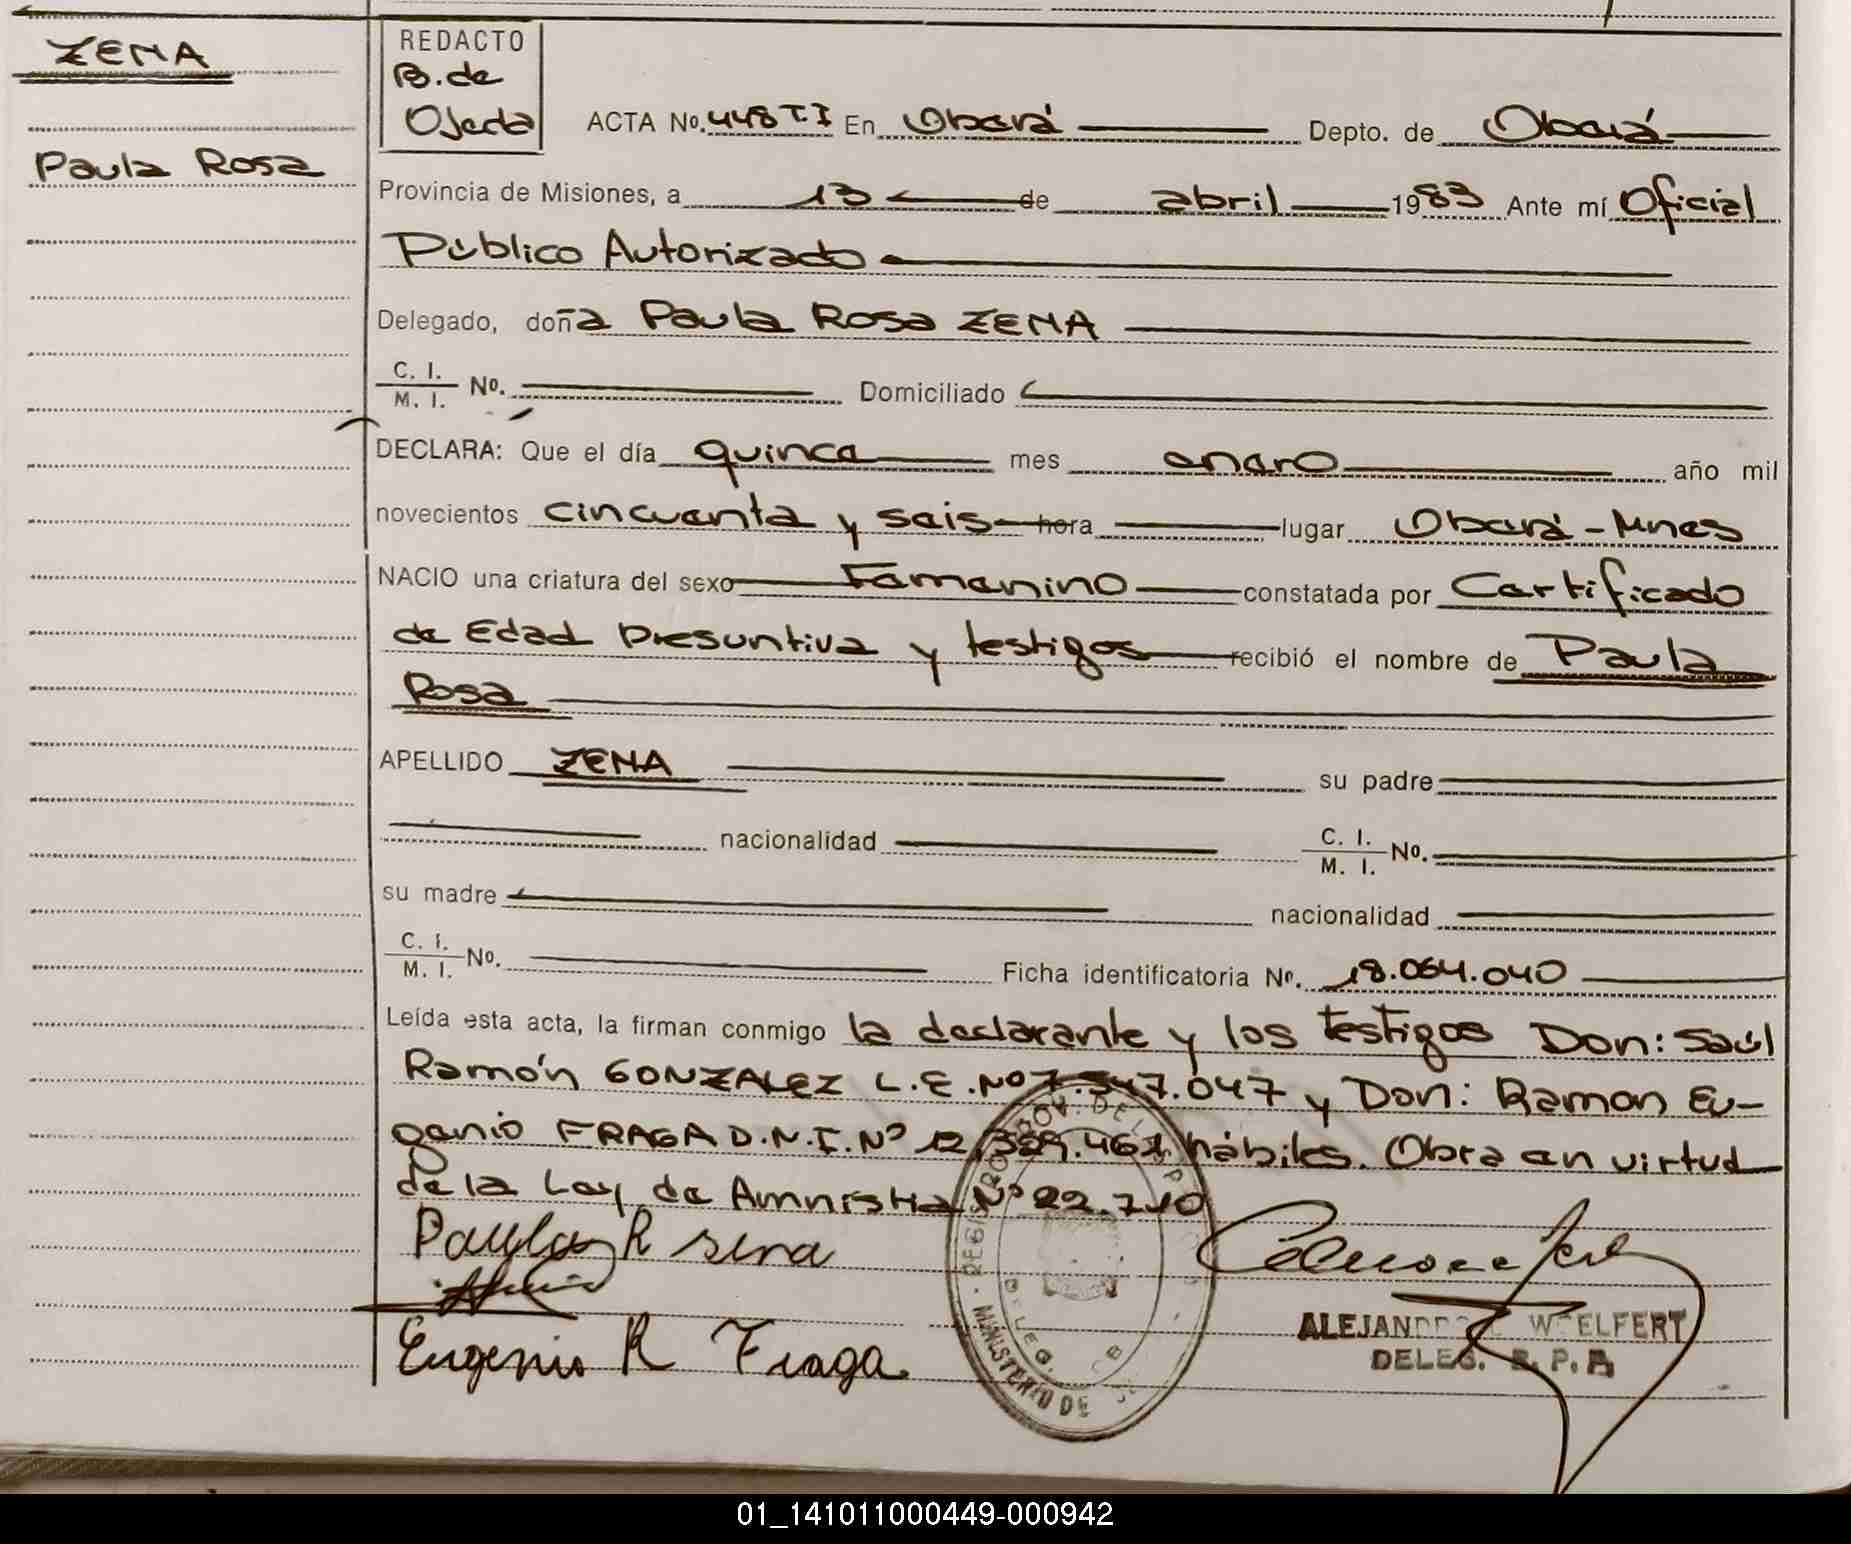 ZENA
Paula Rosa
REDACTO
B. de
Ojeda
ACTA No. 448 T.I En Oberá Depto. de Oberá
Provincia de Misiones, a 13 de abril 1983 Ante mí Oficial
Público Autorizado
Delegado, doña Paula Rosa ZENA
C. I.
M. I. No. Domiciliado
DECLARA: Que el día quince mes enero año mil
novecientos cincuenta y seis hora lugar Oberá - Mnes
NACIO una criatura del sexo Femenino constatada por Certificado
de Edad Presuntiva y testigos recibió el nombre de Paula
Rosa
APELLIDO ZENA su padre
nacionalidad C. I.
M. I. No.
su madre nacionalidad
C. I.
M. I. No. Ficha identificatoria No. 18.064.040
Leída esta acta, la firman conmigo la declarante y los testigos Don: Saúl
Ramón GONZALEZ L.E. Nº 7.547.047 y Don: Ramon Eu-
genio FRAGA D.N.I. Nº 12.389.461 hábiles. Obra en virtud
de la Ley de Amnistia Nº 22.710
Paula R sena
Eugenio R Fraga
MINISTERIO DE
DELEG.
ALEJANDRO WOELFERT
DELEG. R. P. P.
01_141011000449-000942